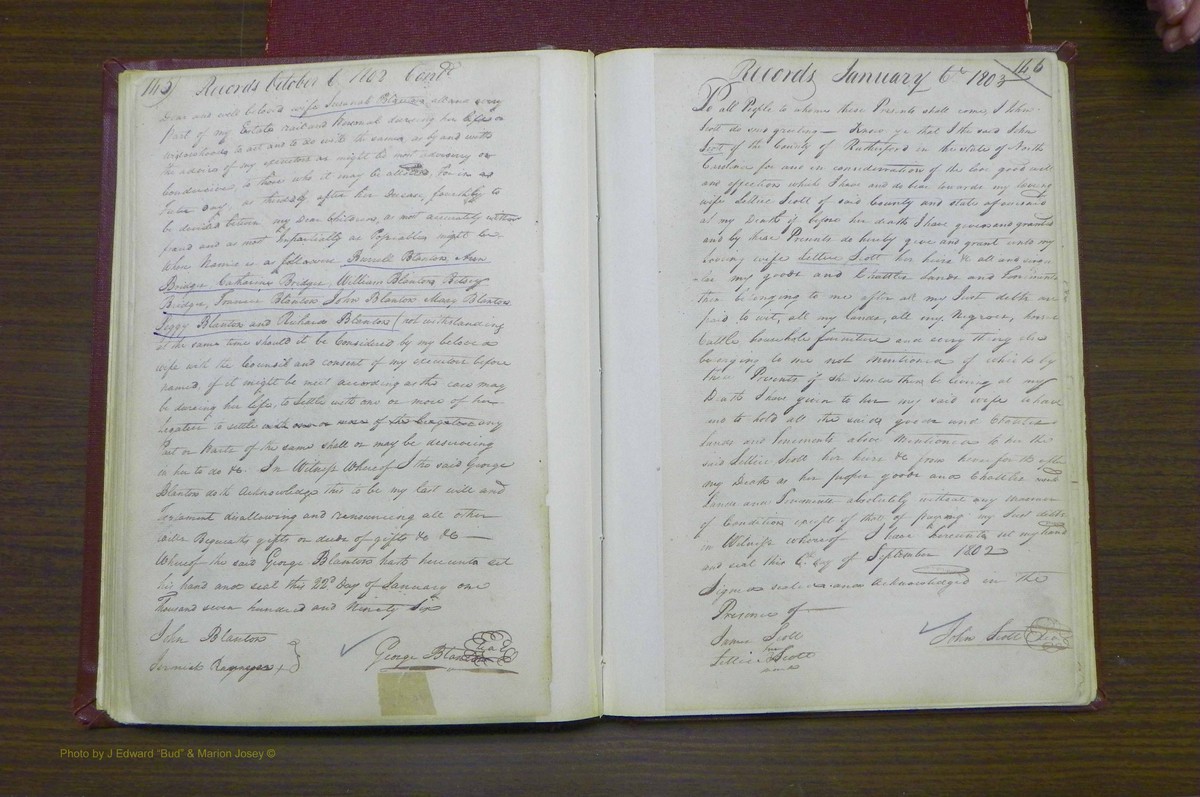 145) Records October 6 1802 Contd
Dear and well beloved wife Susanah Blanton all and every
part of my Estate real and Personal dureing her life or
widowhood, to act and to do with the same as by and with
the advice of my executors as might be most advisory or
Condusive, to those who it may be allotted, for in as
Future Day, as thirdly after her Decease, fourthly to
be devided between my Dear Children, as most accurately without
fraud and as most Impartially as Popiables might be
Whose Names is as followeine Burrell Blanton, Aron
Bridges, Catharine Bridges, William Blanton, Betsey
Bridges, Franice Blanton John Blanton Mary Blanton
Peggy Blanton and Richard Blanton (not withstanding
at the same time should it be Considered by my beloved
wife with the Council and consent of my executors before
named, if it might be meet according as the case may
be dureing her life, to Settle with one or more of her
legatees to settle with one or more of the Legatees any
Part or Parts of the same shall or may be descovering
in her to do &c. In Witness Whereof I the said George
Blanton doth Acknowledge this to be my last will and
testament disallowing and renouncing all other
wills Bequests gifts or deeds of gifts &c &c —
Whereof the said George Blanton hath hereunto set
his hand and seal this 22d day of January one
Thousand seven hundred and Ninety Six
John Blanton
George Blanton Seal
Records January 6th 1803
146
To all People to whome these Presents shall come, I John
Scott do send greeting — Know ye that I the said John
Scott of the County of Rutherford in the state of North
Carolina for and in consideration of the love good will
and affection which I have and do bear towards my loving
wife Lettice Scott of said County and state aforesaid
at my Death if before her death I have given and granted
and by these Presents do hereby give and grant unto my
loving wife Lettice Scott her heirs &c all and every
my goods and Chattles lands and Tenements
then belonging to me after all my Just debts are
paid to wit, all my lands, all my Negroes, horses
Cattle household furniture and every thing else
belonging to me not Mentioned of which by
these Presents if she should then be living at my
Death I have given to her my said wife to have
and to hold all the said goods and Chattles
lands and Tenements above Mentioned to her the
said Lettice Scott her heirs &c from henceforth after
my Death as her proper goods and Chattles
lands and Tenements absolutely without any manner
of Condition except of that of paying my Just debts
in Witness whereof I have hereunto set my hand
and seal this 6th day of September 1802
Signed sealed and Acknowledged in the
Presence of
James Scott
her
Lettice Scott
mark
John Scott Seal
Photo by J Edward "Bud" & Marion Josey ©